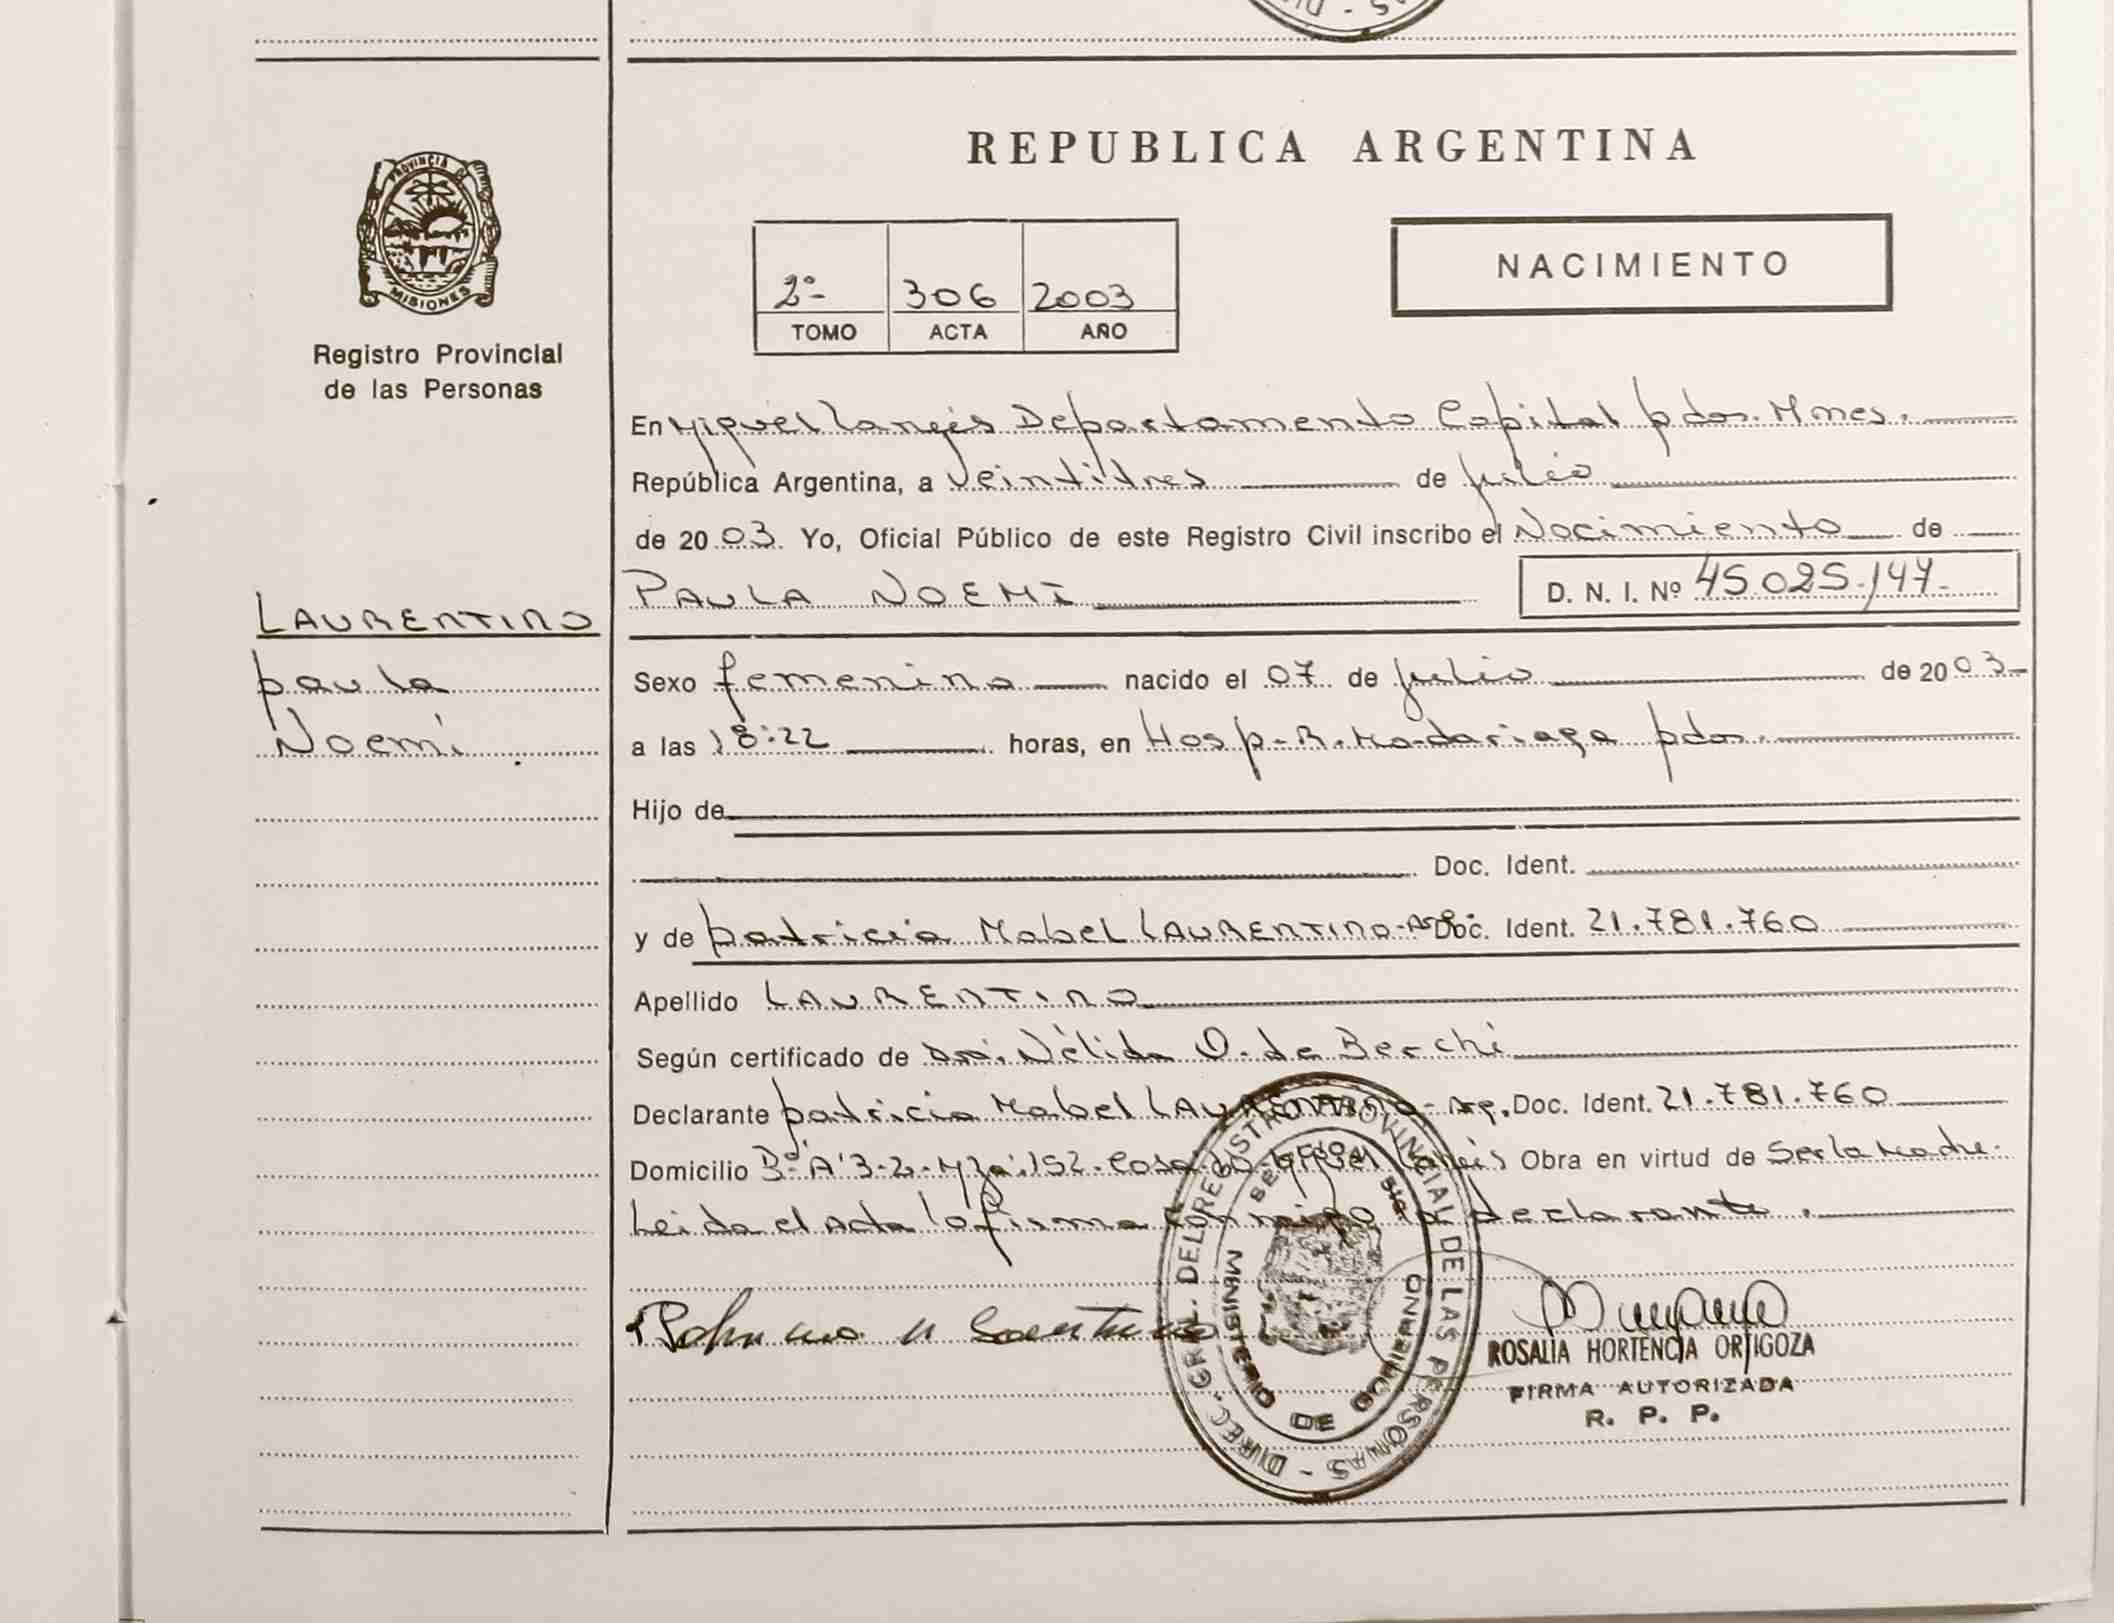 REPUBLICA ARGENTINA
PROVINCIA DE
MISIONES
Registro Provincial
de las Personas
NACIMIENTO
2º 306 2003
TOMO ACTA AÑO
En Miguel Lanús Departamento Capital pdas. Mnes.
República Argentina, a veintitres de julio
de 2003. Yo, Oficial Público de este Registro Civil inscribo el Nacimiento de
PAULA NOEMI D. N. I. Nº 45.025.147-
LAURENTINO
paula
Noemí
Sexo femenino nacido el 07 de julio de 2003-
a las 18:22 horas, en Hosp. R. Madariaga pdas.
Hijo de
Doc. Ident.
y de patricia Mabel LAURENTINO-Arg. Doc. Ident. 21.781.760
Apellido LAURENTINO
Según certificado de Nélida O. de Berchi
Declarante patricia Mabel LAURENTINO- Arg. Doc. Ident. 21.781.760
Domicilio Bº "A" 3-2- Mza. 152- Casa Miguel Lanús Obra en virtud de Ser la Madre.
Leida el Acta la firma conmigo la declarante.
DIREC. GRAL. DEL REGISTRO PROVINCIAL DE LAS PERSONAS
MINISTERIO DE GOBIERNO
ROSALIA HORTENCIA ORTIGOZA
FIRMA AUTORIZADA
R. P. P.